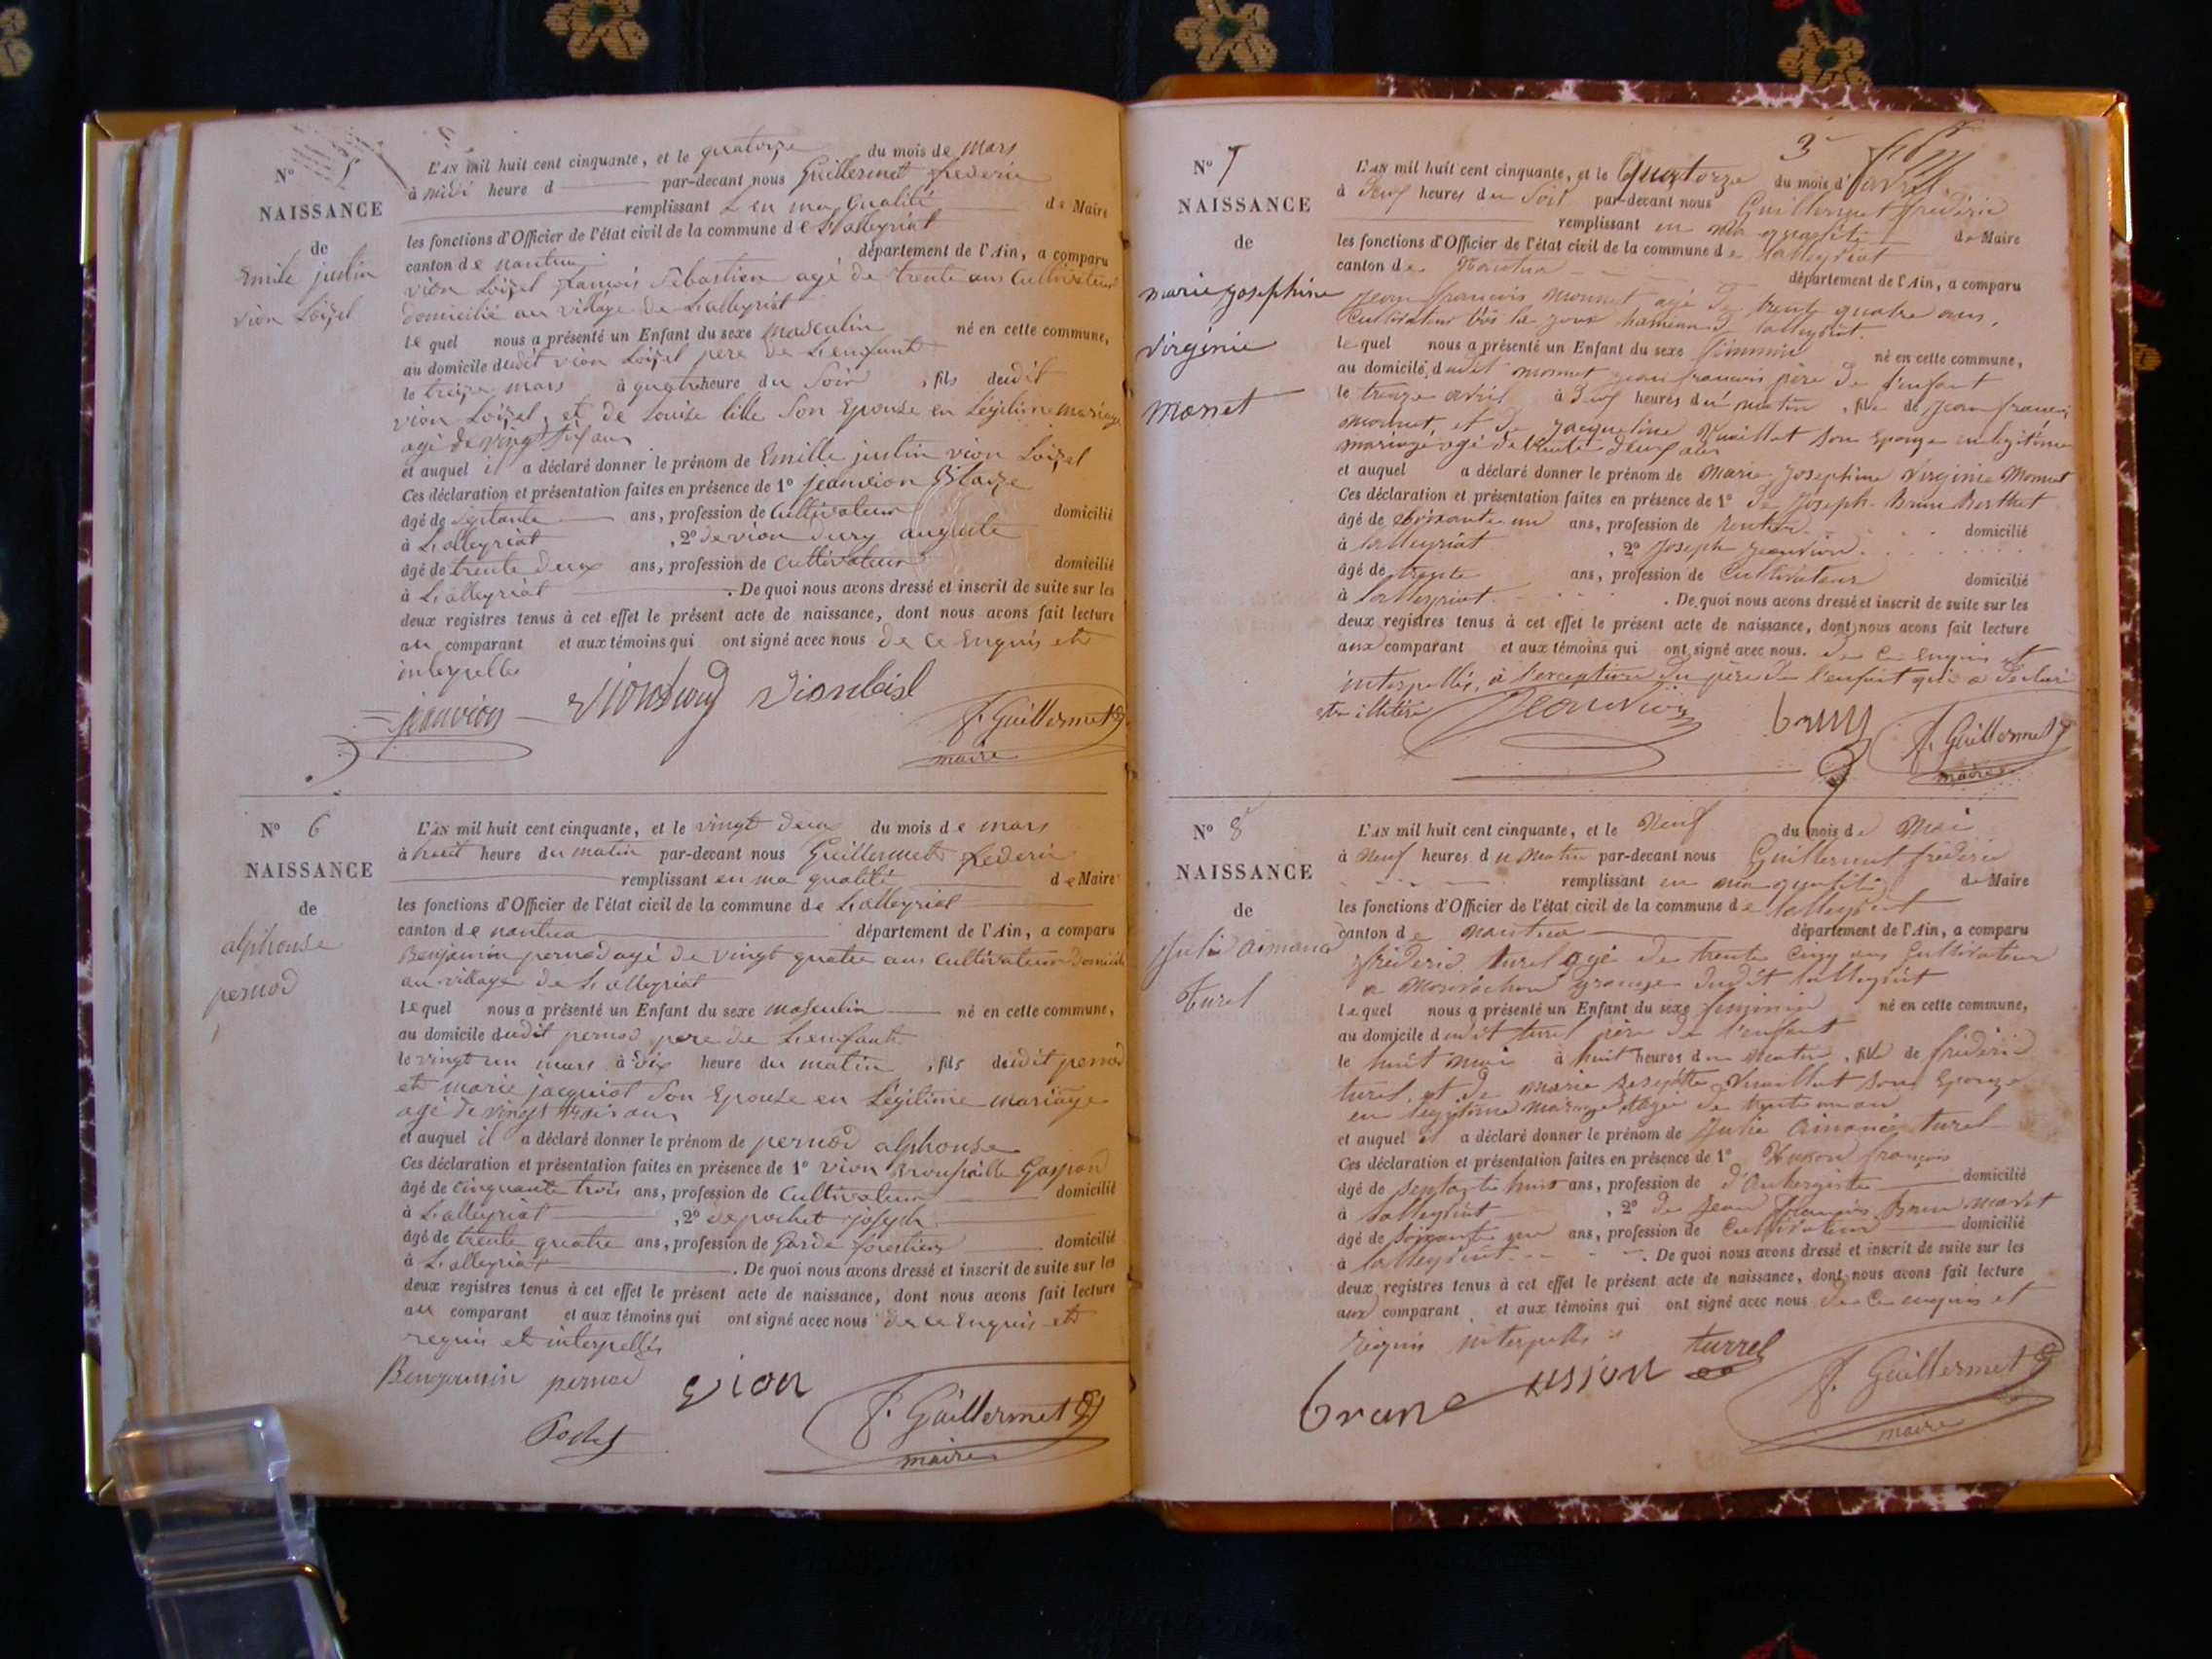 N° 5
NAISSANCE
de
Emile justin
vion Loisel
L'AN mil huit cent cinquante, et le quatorze du mois de mars
à midi heure d par-devant nous Guillermet frederic
remplissant en ma qualité de Maire
les fonctions d'Officier de l'état civil de la commune de Lalleyriat
canton de nantua département de l'Ain, a comparu
vion Loisel francois Sébastien agé de trente ans Cultivateur
domicilié au village de Lalleyriat
lequel nous a présenté un Enfant du sexe masculin né en cette commune,
au domicile dudit vion Loisel pere de Lenfant
le treize mars à quatre heure du Soir , fils dudit
vion Loisel, et de Louise lille Son Epouse en Légitime mariage
agé de vingt six ans
et auquel il a déclaré donner le prénom de Emille justin vion Loisel
Ces déclaration et présentation faites en présence de 1° jeanvion Blaize
âgé de septante ans, profession de Cultivateur domicilié
à Lalleyriat , 2° de vion dury auguste
âgé de trente deux ans, profession de Cultivateur domicilié
à Lalleyriat . De quoi nous avons dressé et inscrit de suite sur les
deux registres tenus à cet effet le présent acte de naissance, dont nous avons fait lecture
au comparant et aux témoins qui ont signé avec nous de ce Enquis et
interpellés
jeanvion viondury vionloisel
f. Guillermet
maire
N° 6
NAISSANCE
de
alphonse
pernod
L'AN mil huit cent cinquante, et le vingt deux du mois de mars
à huit heure du matin par-devant nous Guillermet frederic
remplissant en ma qualité de Maire
les fonctions d'Officier de l'état civil de la commune de Lalleyriat
canton de nantua département de l'Ain, a comparu
Benjamin pernod agé de vingt quatre ans Cultivateur Domicilié
au village de Lalleyriat
lequel nous a présenté un Enfant du sexe masculin né en cette commune,
au domicile dudit pernod pere de Lenfant
le vingt un mars à dix heure du matin , fils dudit pernod
et marie jacquiot Son Epouse en Légitime mariage
agé de vingt trois ans
et auquel il a déclaré donner le prénom de pernod alphonse
Ces déclaration et présentation faites en présence de 1° vion Gaspard
âgé de Cinquante trois ans, profession de Cultivateur domicilié
à Lalleyriat , 2° de pochet joseph
âgé de trente quatre ans, profession de Garde forestier domicilié
à Lalleyriat . De quoi nous avons dressé et inscrit de suite sur les
deux registres tenus à cet effet le présent acte de naissance, dont nous avons fait lecture
au comparant et aux témoins qui ont signé avec nous de ce Enquis et
requis et interpellés
Benjamin pernod vion
Pochet f. Guillermet
maire
N° 7
NAISSANCE
de
marie josephine
virginie
monnet
L'AN mil huit cent cinquante, et le Quatorze du mois d'avril
à Deux heures du Soir par-devant nous Guillermet frédéric
remplissant en ma qualité de Maire
les fonctions d'Officier de l'état civil de la commune de Lalleyriat
canton de Nantua département de l'Ain, a comparu
Jean francois monnet agé de trente quatre ans,
Cultivateur hameau de lalleyriat.
lequel nous a présenté un Enfant du sexe féminin né en cette commune,
au domicile dudit monnet jean francois père de l'enfant
le treize avril à Deux heures du matin , fille de jean françois
monnet, et de jacqueline Vuaillat Son Epouse en légitime
mariage agé de trente deux ans
et auquel a déclaré donner le prénom de Marie Josephine Virginie Monnet
Ces déclaration et présentation faites en présence de 1° de Joseph Brun Berthet
âgé de soixante un ans, profession de rentier domicilié
à lalleyriat , 2° Joseph jeanvion
âgé de trente ans, profession de Cultivateur domicilié
à lalleyriat . De quoi nous avons dressé et inscrit de suite sur les
deux registres tenus à cet effet le présent acte de naissance, dont nous avons fait lecture
aux comparant et aux témoins qui ont signé avec nous. de ce enquis et
interpellés, à l'exception du père de l'enfant qui a déclaré
être illétéré Jeanvion brun
f. Guillermet
maire
N° 8
NAISSANCE
de
Julie aimance
Turel
L'AN mil huit cent cinquante, et le Neuf du mois de Mai
à Neuf heures du matin par-devant nous Guillermet frédéric
remplissant en ma qualité de Maire
les fonctions d'Officier de l'état civil de la commune de lalleyriat
canton de nantua département de l'Ain, a comparu
fréderic turel agé de trente cinq ans Cultivateur
a grange dudit lalleyriat
lequel nous a présenté un Enfant du sexe feminin né en cette commune,
au domicile dudit turel père de l'enfant
le huit mai à huit heures du matin , fille de fréderic
turel et de marie Vuaillat son Epouse
en legitime mariage agée de trente un an
et auquel il a déclaré donner le prénom de Julie aimance turel
Ces déclaration et présentation faites en présence de 1° Husson françois
âgé de septante huit ans, profession d'Aubergiste domicilié
à lalleyriat , 2° de Jean francois Brun
âgé de soixante un ans, profession de Cultivateur domicilié
à lalleyriat . De quoi nous avons dressé et inscrit de suite sur les
deux registres tenus à cet effet le présent acte de naissance, dont nous avons fait lecture
aux comparant et aux témoins qui ont signé avec nous de ce enquis et
requis interpellés
brun ussion turrel
f. Guillermet
maire